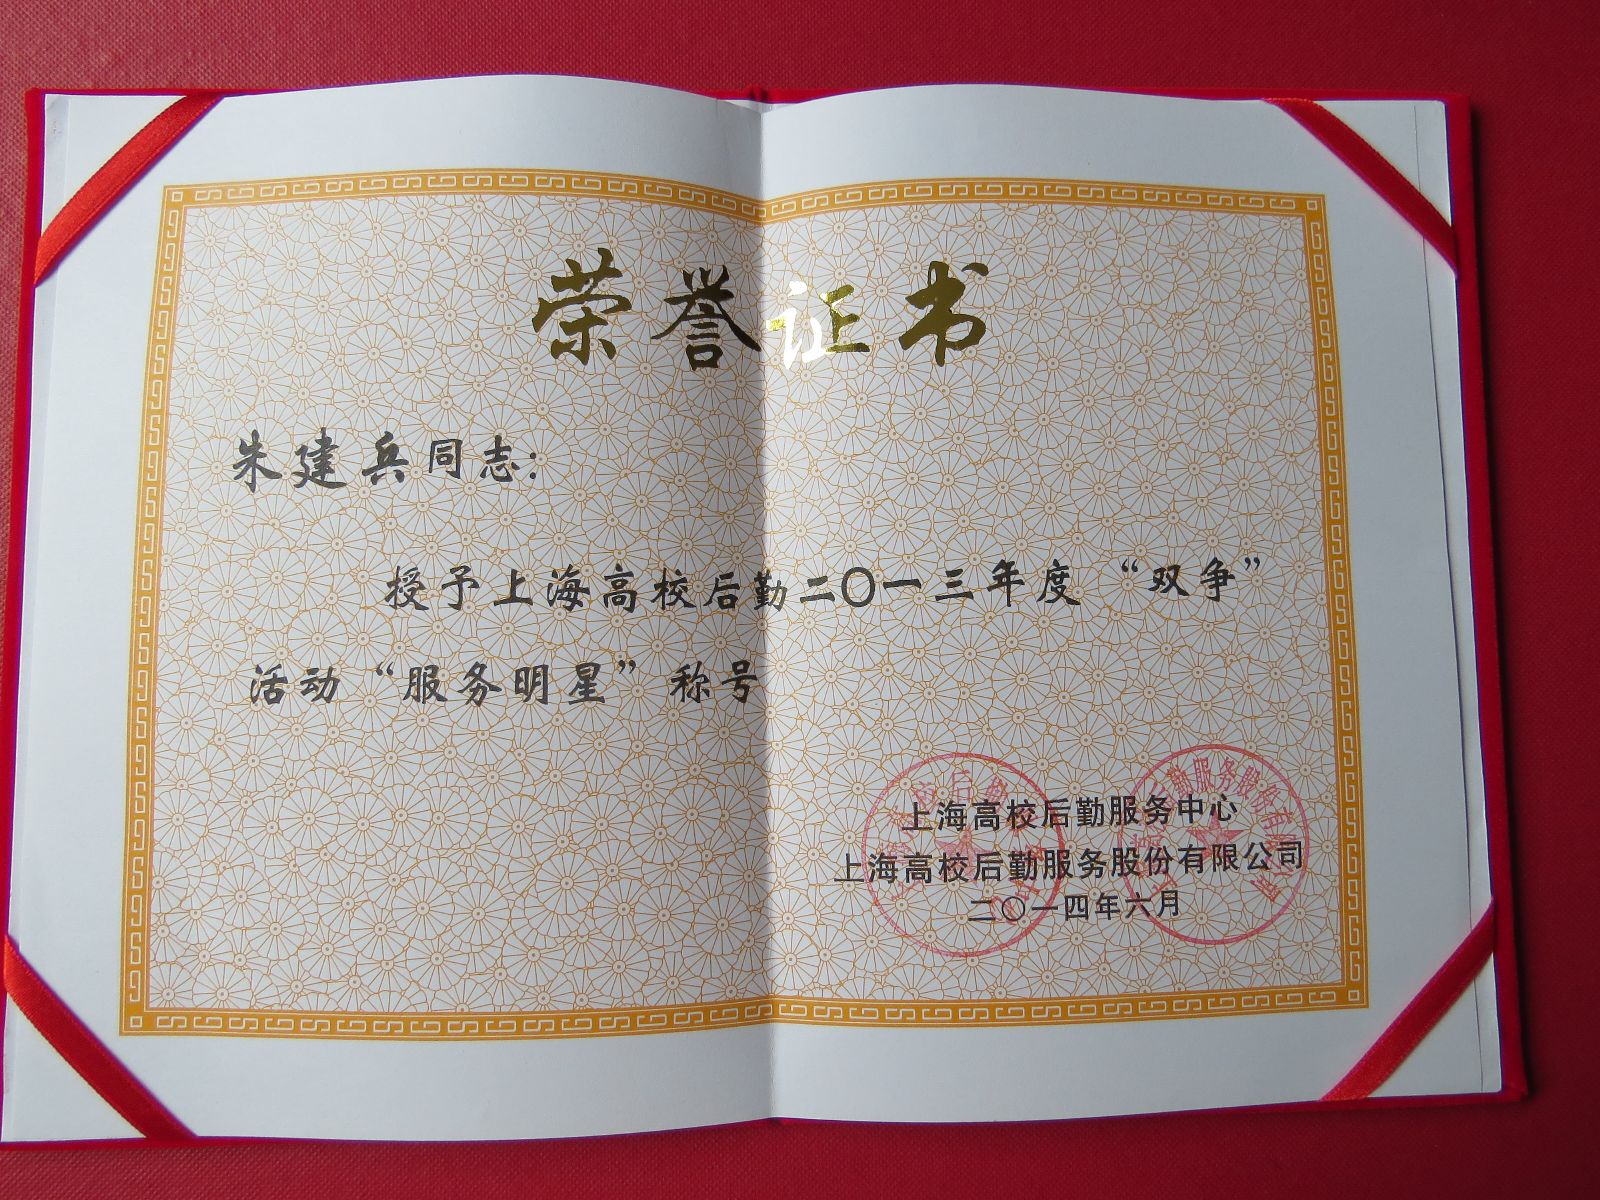 荣誉证书
朱建兵同志：
授予上海高校后勤二〇一三年度“双争”
活动“服务明星”称号
上海高校后勤服务中心
上海高校后勤服务股份有限公司
二〇一四年六月